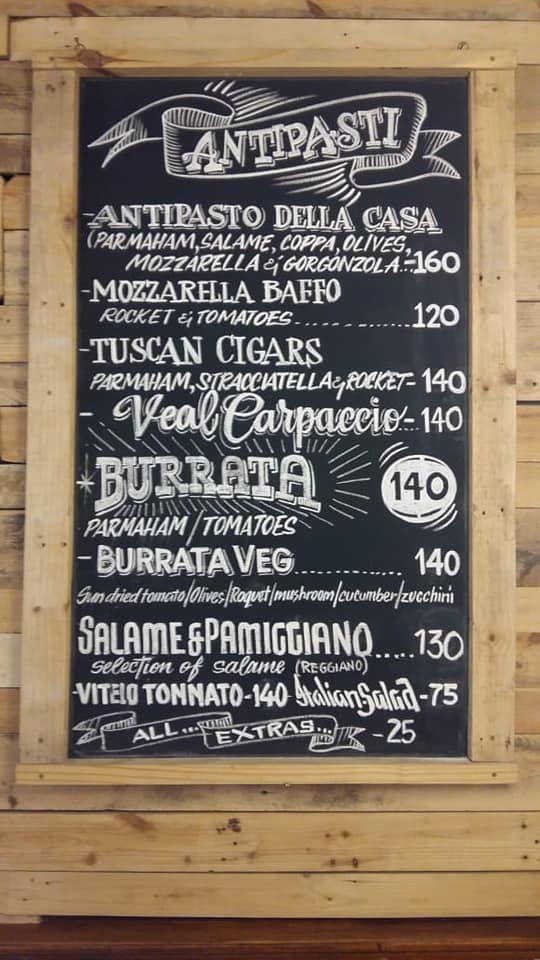 ANTIPASTI
-ANTIPASTO DELLA CASA
(PARMAHAM, SALAME, COPPA, OLIVES,
MOZZARELLA & GORGONZOLA...-160
-MOZZARELLA BAFFO
ROCKET & TOMATOES.................120
-TUSCAN CIGARS
PARMAHAM, STRACCIATELLA & ROCKET-140
- Veal Carpaccio-140
*BURRATA 140
PARMAHAM/TOMATOES
-BURRATA VEG.................140
Sun dried tomato/Olives/Roquet/mushroom/cucumber/zucchini
SALAME & PAMIGGIANO.....130
selection of salame (REGGIANO)
-VITELO TONNATO-140 Italian Salad-75
ALL... EXTRAS... -25